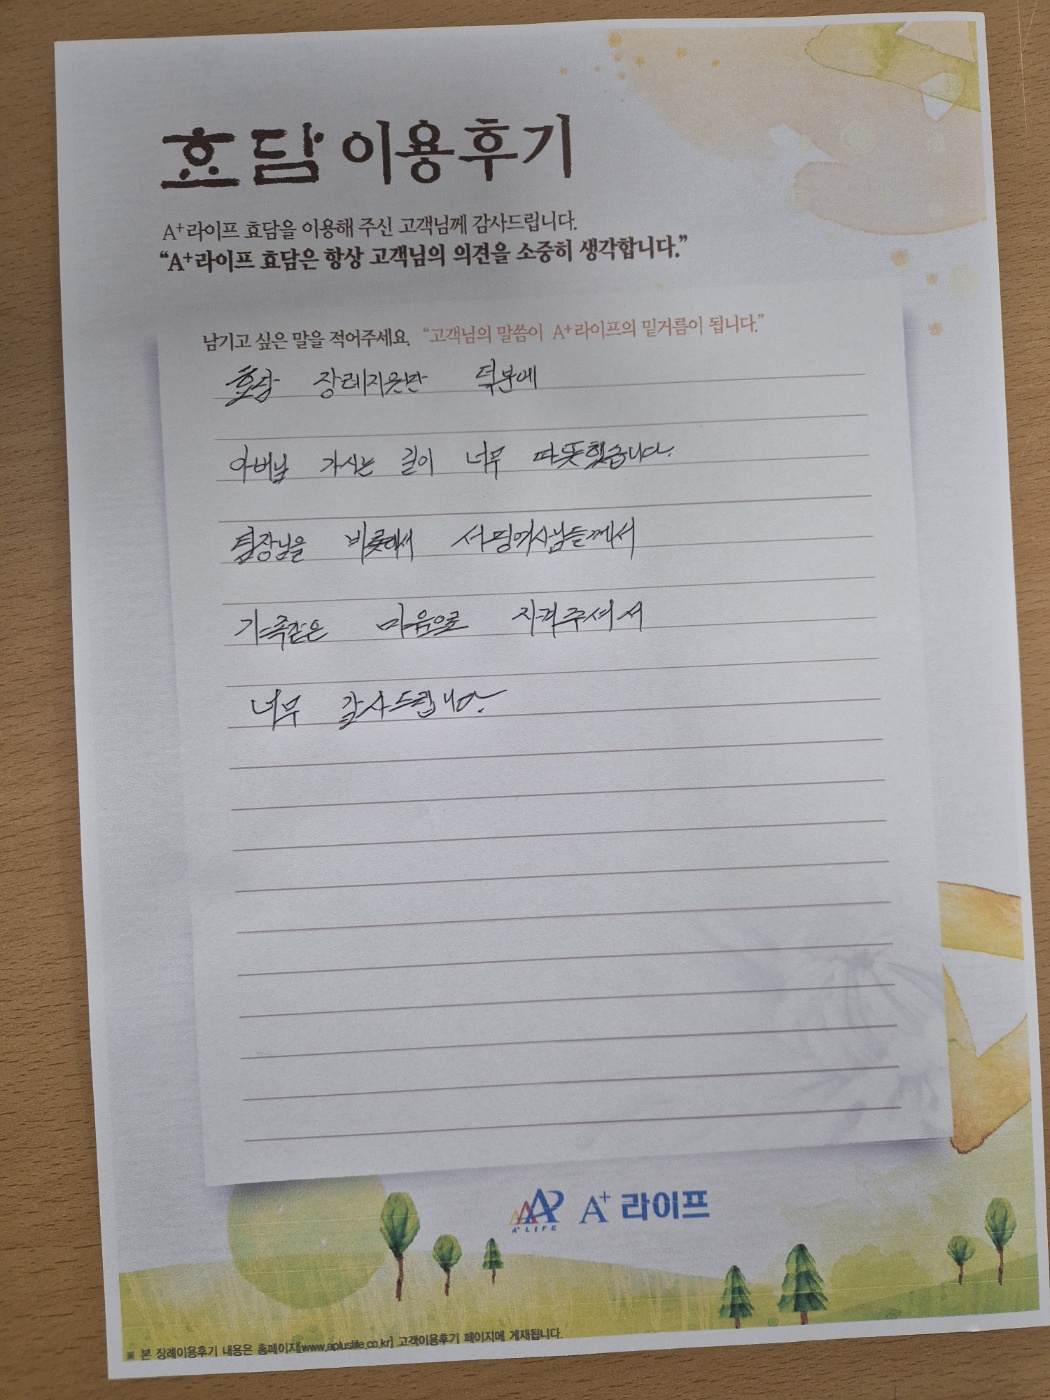 효담 이용후기
A⁺라이프 효담을 이용해 주신 고객님께 감사드립니다.
“A⁺라이프 효담은 항상 고객님의 의견을 소중히 생각합니다.”
남기고 싶은 말을 적어주세요. “고객님의 말씀이 A⁺라이프의 밑거름이 됩니다.”
효담 장례지원단 덕분에
아버님 가시는 길이 너무 따뜻했습니다.
팀장님을 비롯해서 여사님들께서
가족같은 마음으로 지켜주셔서
너무 감사드립니다.
A⁺ LIFE A⁺ 라이프
※ 본 장례이용후기 내용은 홈페이지[www.apluslife.co.kr] 고객이용후기 페이지에 게재됩니다.